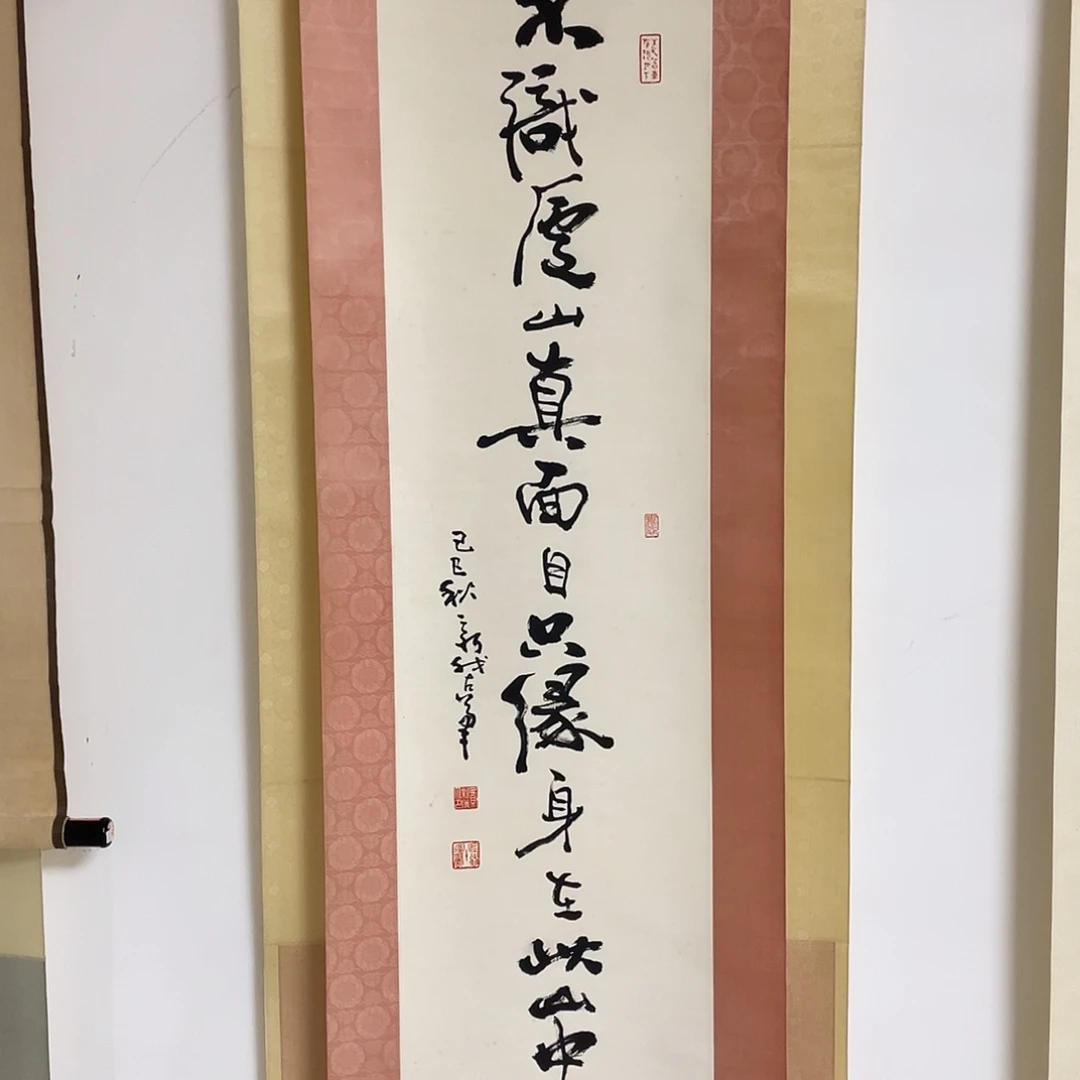 不識廬山真面目只緣身在此山中
己巳秋